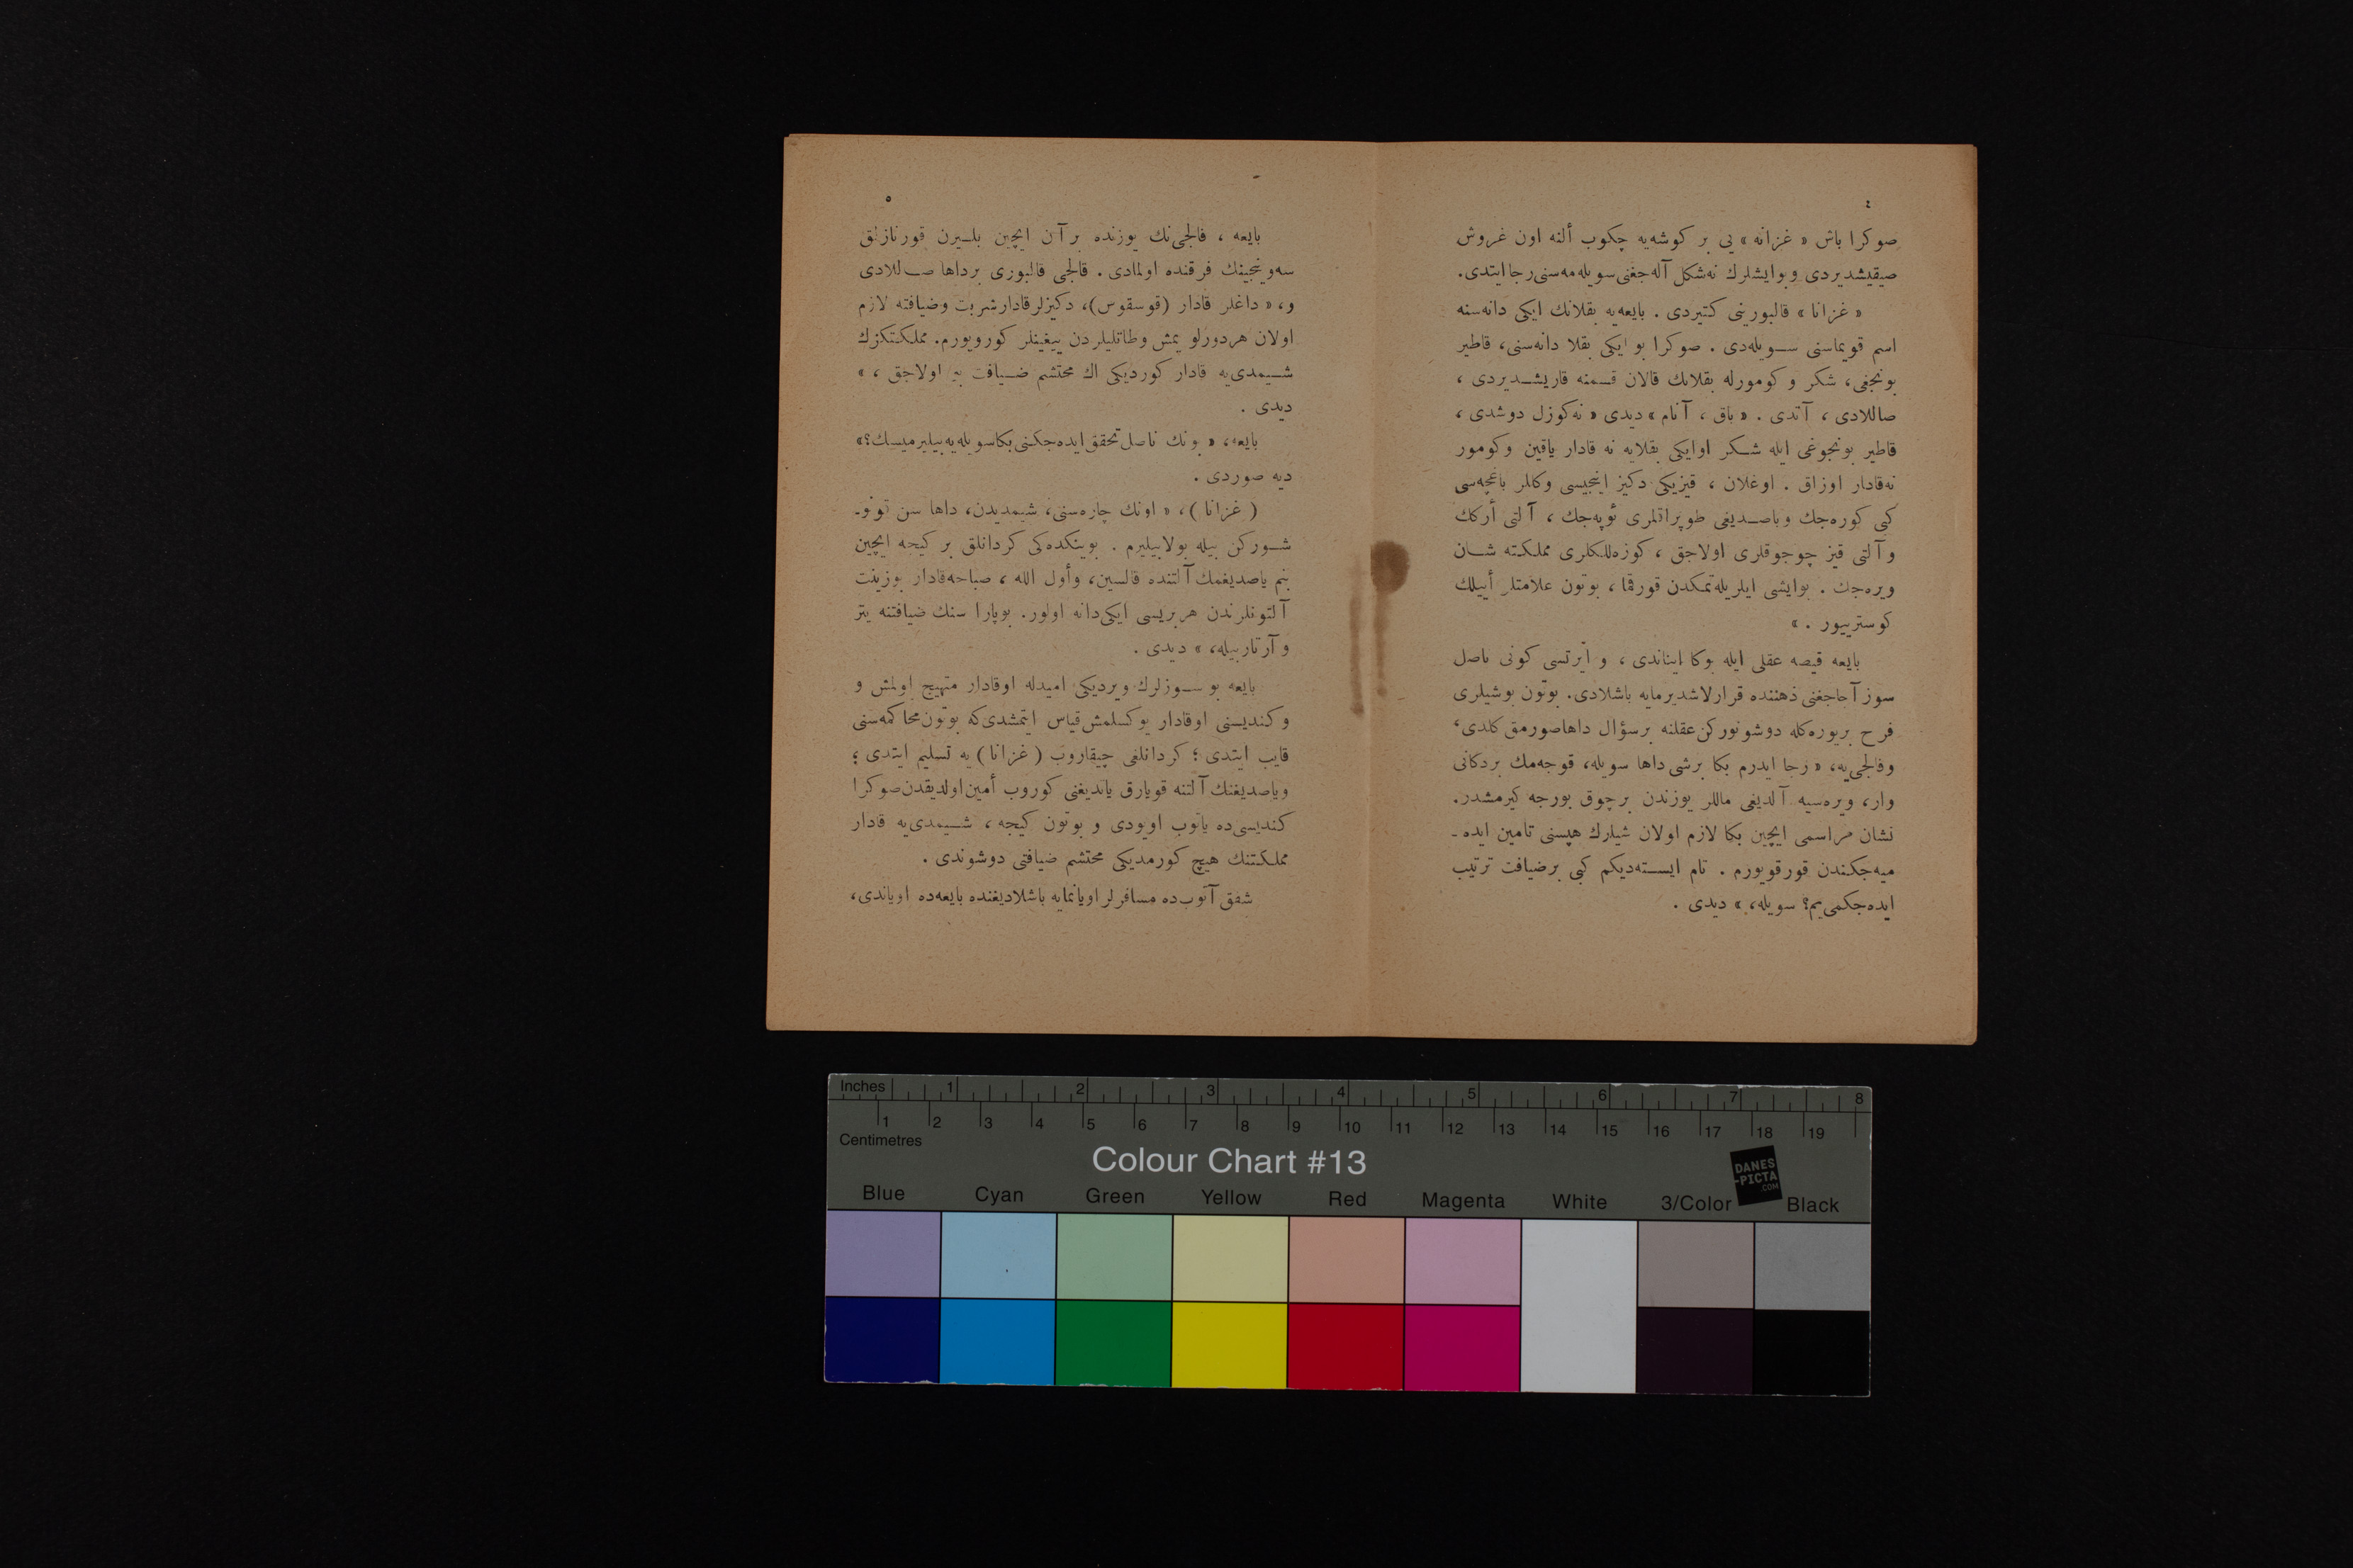 ٤
صوكرا باش « غزانه » يى بر كوشه‌يه چكوب ألنه اون غروش
صيقيشديردى وبوايشلرك نه‌شكل آله‌جغنى‌سويله‌مه‌سنى‌رجا‌ايتدى.
« غزانا » قالبورينى كتيردى . بايعه‌يه بقلانك ايكى دانه‌سنه
اسم قويماسنى سويله‌دى . صوكرا بو ايكى بقلا دانه‌سنى، قاطير
بونجغى، شكر و كومورله بقلانك قالان قسمنه قاريشديردى ،
صاللادى ، آتدى . « باق ، آنام » ديدى « نه‌كوزل دوشدى ،
قاطير بونجوغى ايله شكر اوايكى بقلايه نه قادار ياقين وكومور
نه‌قادار اوزاق . اوغلان ، قيزيكى دكيز اينجيسى وكللر باغچه‌سى
كبى كوره‌جك وباصديغى طوپراقلرى ئوپه‌جك ، آلتى أركك
وآلتى قيز چوجوقلرى اولاجق ، كوزه‌للكلرى مملكته شان
ويره‌جك . بوايشى ايلريله‌تمكدن قورقما ، بوتون علامتلر أييلك
كوسترييور . »
بايعه قيصه عقلى ايله بوكا ايناندى ، و ايرتسى كونى ناصل
سوز آجاجغنى ذهننده قرارلاشديرمايه باشلادى. بوتون بوشيلرى
فرح بريوره‌كله دوشونوركن‌عقلنه برسؤال داهاصورمق‌كلدى،
وفالجى‌يه، « رجا ايدرم بكا برشى داها سويله، قوجه‌مك بردكانى
وار، ويره‌سيه آلديغى ماللر يوزندن برچوق بورجه كيرمشدر.
نشان مراسمى ايچين بكا لازم اولان شيلرك هپسنى تامين ايده -
ميه‌جكندن قورقويورم . تام ايسته‌ديكم كبى برضيافت ترتيب
ايده‌جكمى‌يم؟ سويله، » ديدى .
٥
بايعه ، فالجى‌نك يوزنده بر آن ايچين بليرن قورنازلق
سه‌وينجينك فرقنده اولمادى . فالجى قالبورى برداها صاللادى
و، « داغلر قادار (قوسقوس)، دكيزلرقادارشربت وضيافته لازم
اولان هردورلو يمش وطاتليلردن ييغينلر كورويورم. مملكتكزك
شيمدى‌يه قادار كورديكى اك محتشم ضيافت بو اولاجق ، »
ديدى .
بايعه، « بونك ناصل‌تحقق‌ايده‌جكنى‌بكاسويله‌يه‌بيليرميسك؟»
ديه صوردى .
( غزانا )، « اونك چاره‌سنى، شيمديدن، داها سن قونو-
شوركن بيله بولابيليرم . بوينكده‌كى كردانلق بر كيجه ايچين
بنم ياصديغمك آلتنده قالسين، وأول الله ، صباحه‌قادار بوزينت
آلتونلرندن هربريسى ايكى‌دانه اولور. بوپارا سنك ضيافتنه يتر
و آرتاربيله، » ديدى .
بايعه بو سوزلرك ويرديكى اميدله اوقادار متهيج اولمش و
وكنديسنى اوقادار يوكسلمش‌قياس ايتمشدى‌كه بوتون‌محاكمه‌سنى
قايب ايتدى؛ كردانلغى چيقاروب ( غزانا ) يه تسليم ايتدى ؛
وياصديغنك آلتنه قويارق ياتديغنى كوروب أمين‌اولديقدن‌صوكرا
كنديسى‌ده ياتوب اويودى و بوتون كيجه ، شيمدى‌يه قادار
مملكتنك هيچ كورمديكى محتشم ضيافتى دوشوندى .
شفق آتوب‌ده مسافرلر اويانمايه باشلاديغنده بايعه‌ده اوياندى،
Inches 1 2 3 4 5 6 7 8
1 2 3 4 5 6 7 8 9 10 11 12 13 14 15 16 17 18 19
Centimetres
Colour Chart #13
DANES
-PICTA
.COM
Blue Cyan Green Yellow Red Magenta White 3/Color Black